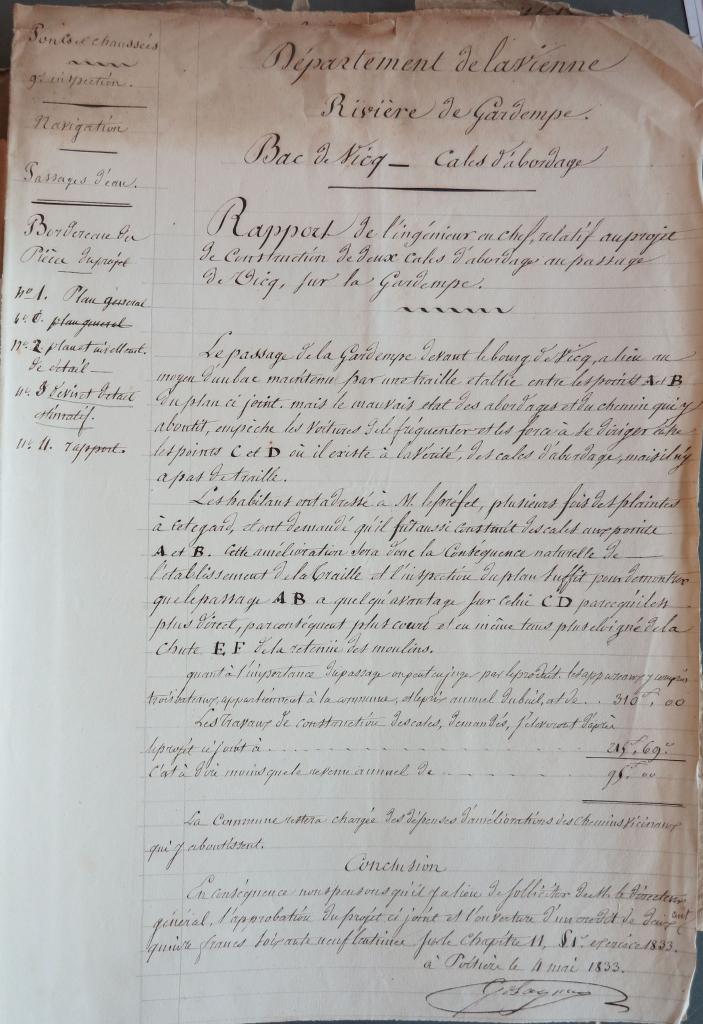 Ponts et chaussées
9e inspection.
Navigation
Passages d'eau.
Bordereau des
Pièces du projet
nº 1. Plan général
plan général
nº 2 plan et nivellemt.
de détail
nº 3 devis et détail
estimatif.
nº 4. rapport.
Département de la Vienne
Rivière de Gardempe.
Bac de Vicq — Cales d'abordage
Rapport de l'ingénieur en chef, relatif au projet
de construction de deux cales d'abordage au passage
de Vicq, sur la Gardempe.
Le passage de la Gardempe devant le bourg de Vicq, a lieu au
moyen d'un bac maintenu par une traille établie entre les points A et B
du plan ci joint. mais le mauvais état des abordages et du chemin qui y
aboutit, empêche les voitures de le fréquenter et les force à se diriger entre
les points C et D où il existe à la vérité, des cales d'abordage, mais il n'y
a pas de traille.
Les habitans ont adressé à M. le préfet, plusieurs fois des plaintes
à cet egard, et ont demandé qu'il fut aussi construit des cales aux points
A et B. Cette amélioration sera donc la Conséquence naturelle de
l'établissement de la traille et l'inspection du plan suffit pour démontrer
que le passage A B a quelqu'avantage sur celui C D parcequ'il est
plus direct, par conséquent plus court et en même tems plus eloigné de la
chute E F de la retenue des moulins.
quant à l'importance du passage on peut en juger par le produit. les apparaux y compris
trois bateaux, appartiennent à la commune, et le prix annuel du bail, est de . . 310f, 00
Les travaux de construction des cales, demandés, s'éleveront d'après
le projet ci joint à . . . . . . . . . . 215f, 69c
C'est à dire moins que le revenu annuel de . . . . . . 95f 00
La Commune restera chargée des dépenses d'améliorations des chemins vicinaux
qui y aboutissent.
Conclusion
En conséquence nous pensons qu'il y a lieu de solliciter de M. le directeur
général, l'approbation du projet ci joint et l'ouverture d'un crédit de deux cent
quinze francs soixante neuf centimes sur le chapitre 11, §1er. exercice 1833.
à Poitiers le 4 mai 1833.